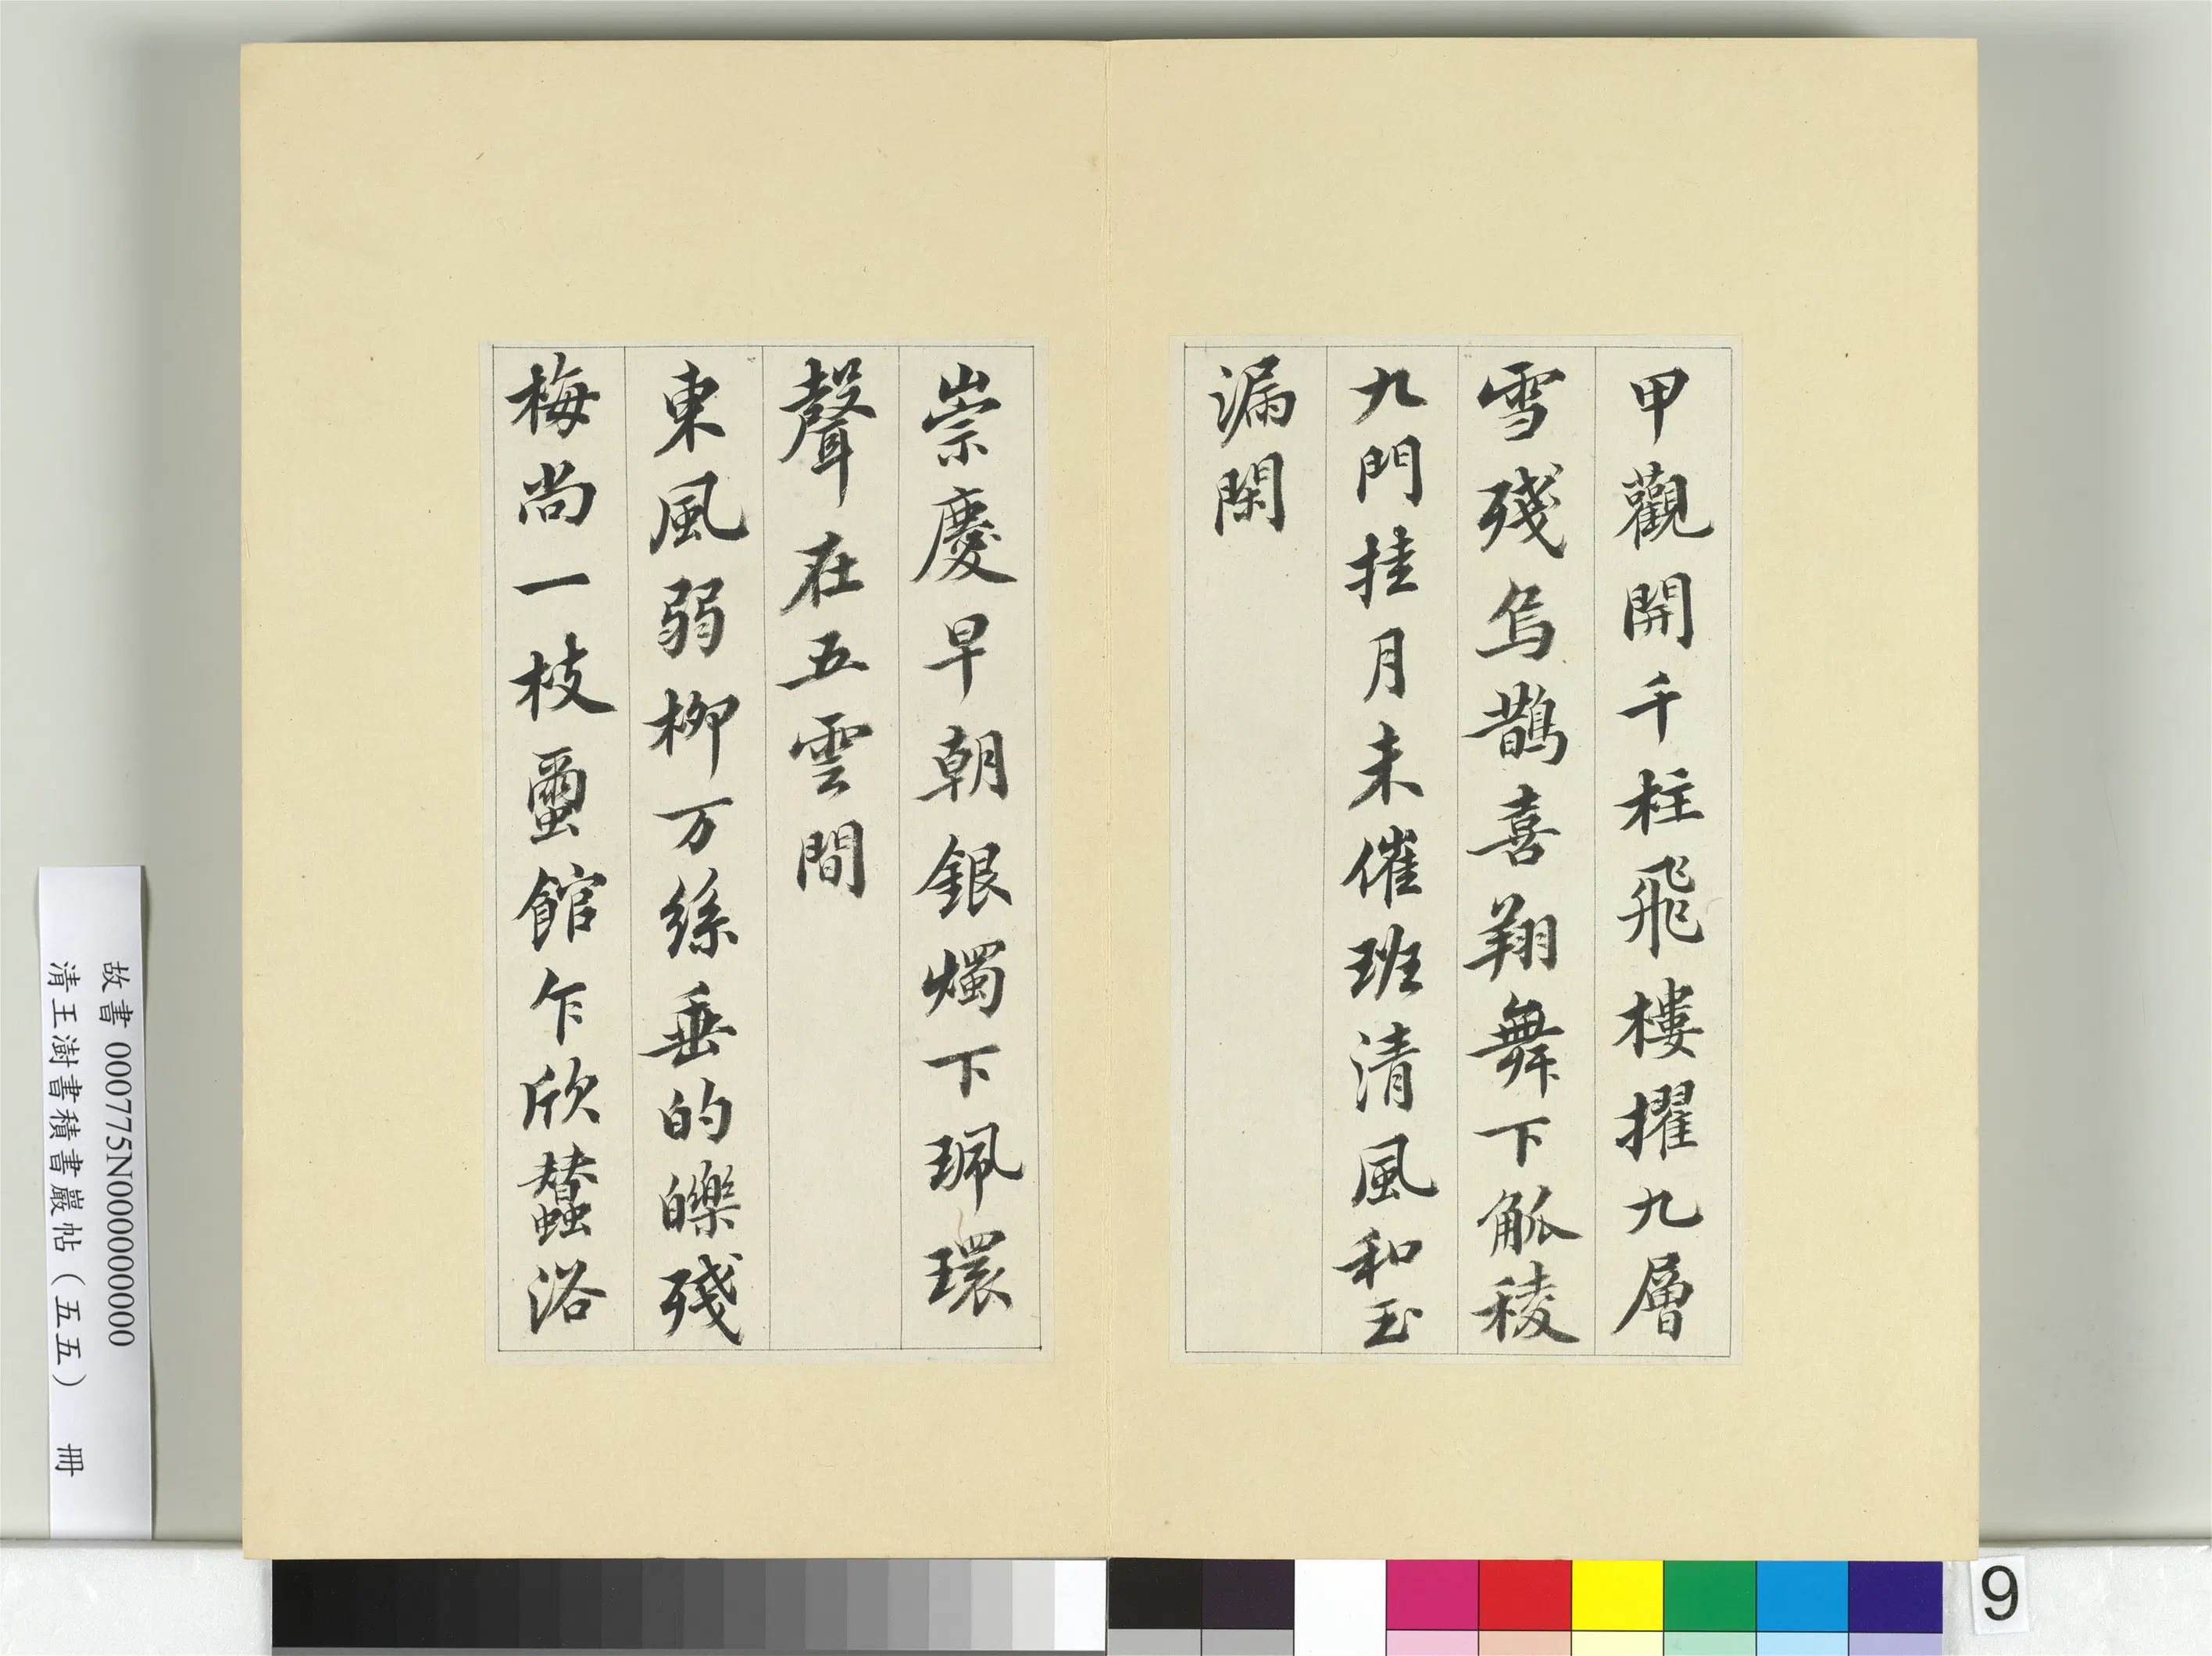 甲觀開千柱飛樓擢九層
雪殘烏鵲喜翔舞下觚稜
九門挂月未催班清風和玉
漏閑
崇慶早朝銀燭下珮環
聲在五雲間
東風弱柳万絲垂的皪殘
梅尚一枝璽館乍欣蠶浴
故書 000775N000000000
清王澍書積書巖帖（五五） 冊
9